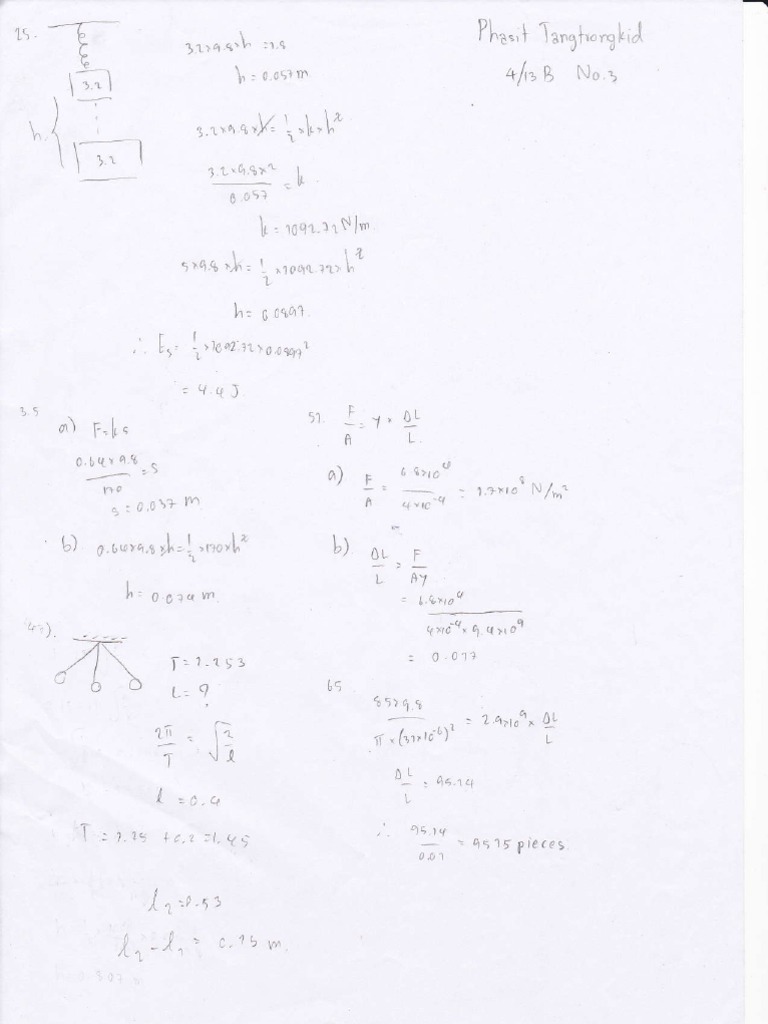 Phasit Tangtrongkid
4/13 B No.3
25.
3.2
h
3.2
3.2×9.8×h = 1.8
h = 0.057 m
3.2×9.8×h = 1/2 ×k×h²
3.2×9.8×2 / 0.057 = k
k = 1092.72 N/m
5×9.8×h = 1/2 ×1092.72×h²
h = 0.0897
∴ Es = 1/2 ×1092.72×0.0897²
= 4.4 J
3.5
a) F=ks
0.64×9.8 / 170 = s
s = 0.037 m
b) 0.64×9.8×h = 1/2 ×170×h²
h = 0.074 m
47).
T = 1.253
L = ?
2π/T = √
l = 0.4
T = 1.25 + 0.2 = 1.45
l₂ = 0.53
l₂ - l₁ = 0.15 m.
57. F/A = Y × ΔL/L
a) F/A = 6.8×10⁴ / 4×10⁻⁴ = 1.7×10⁸ N/m²
b) ΔL/L = F/AY
= 6.8×10⁴ / 4×10⁻⁴ × 9.4×10⁹
= 0.017
65
85×9.8 / π×(31×10⁻⁶)² = 2.9×10⁹ × ΔL/L
ΔL/L = 95.14
∴ 95.14 / 0.01 = 9515 pieces